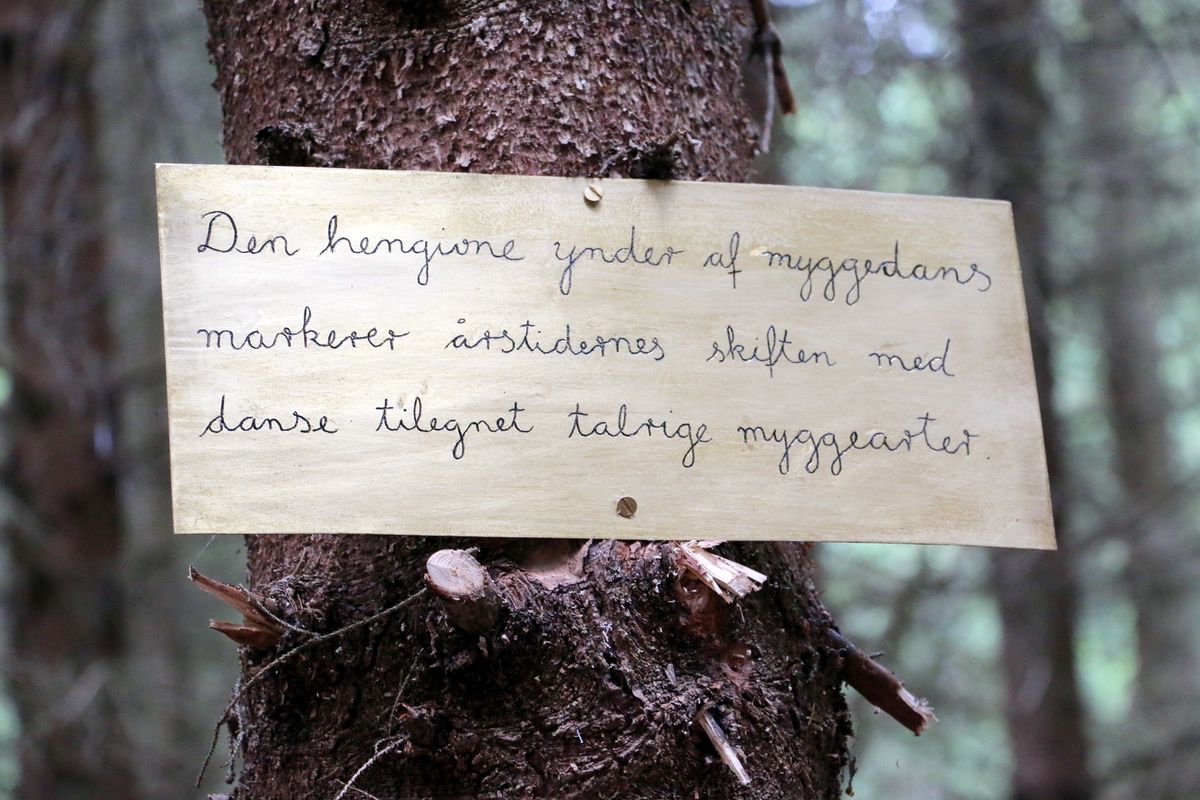 Den hengivne ynder af myggedans
markerer årstidernes skiften med
danse tilegnet talrige myggearter.